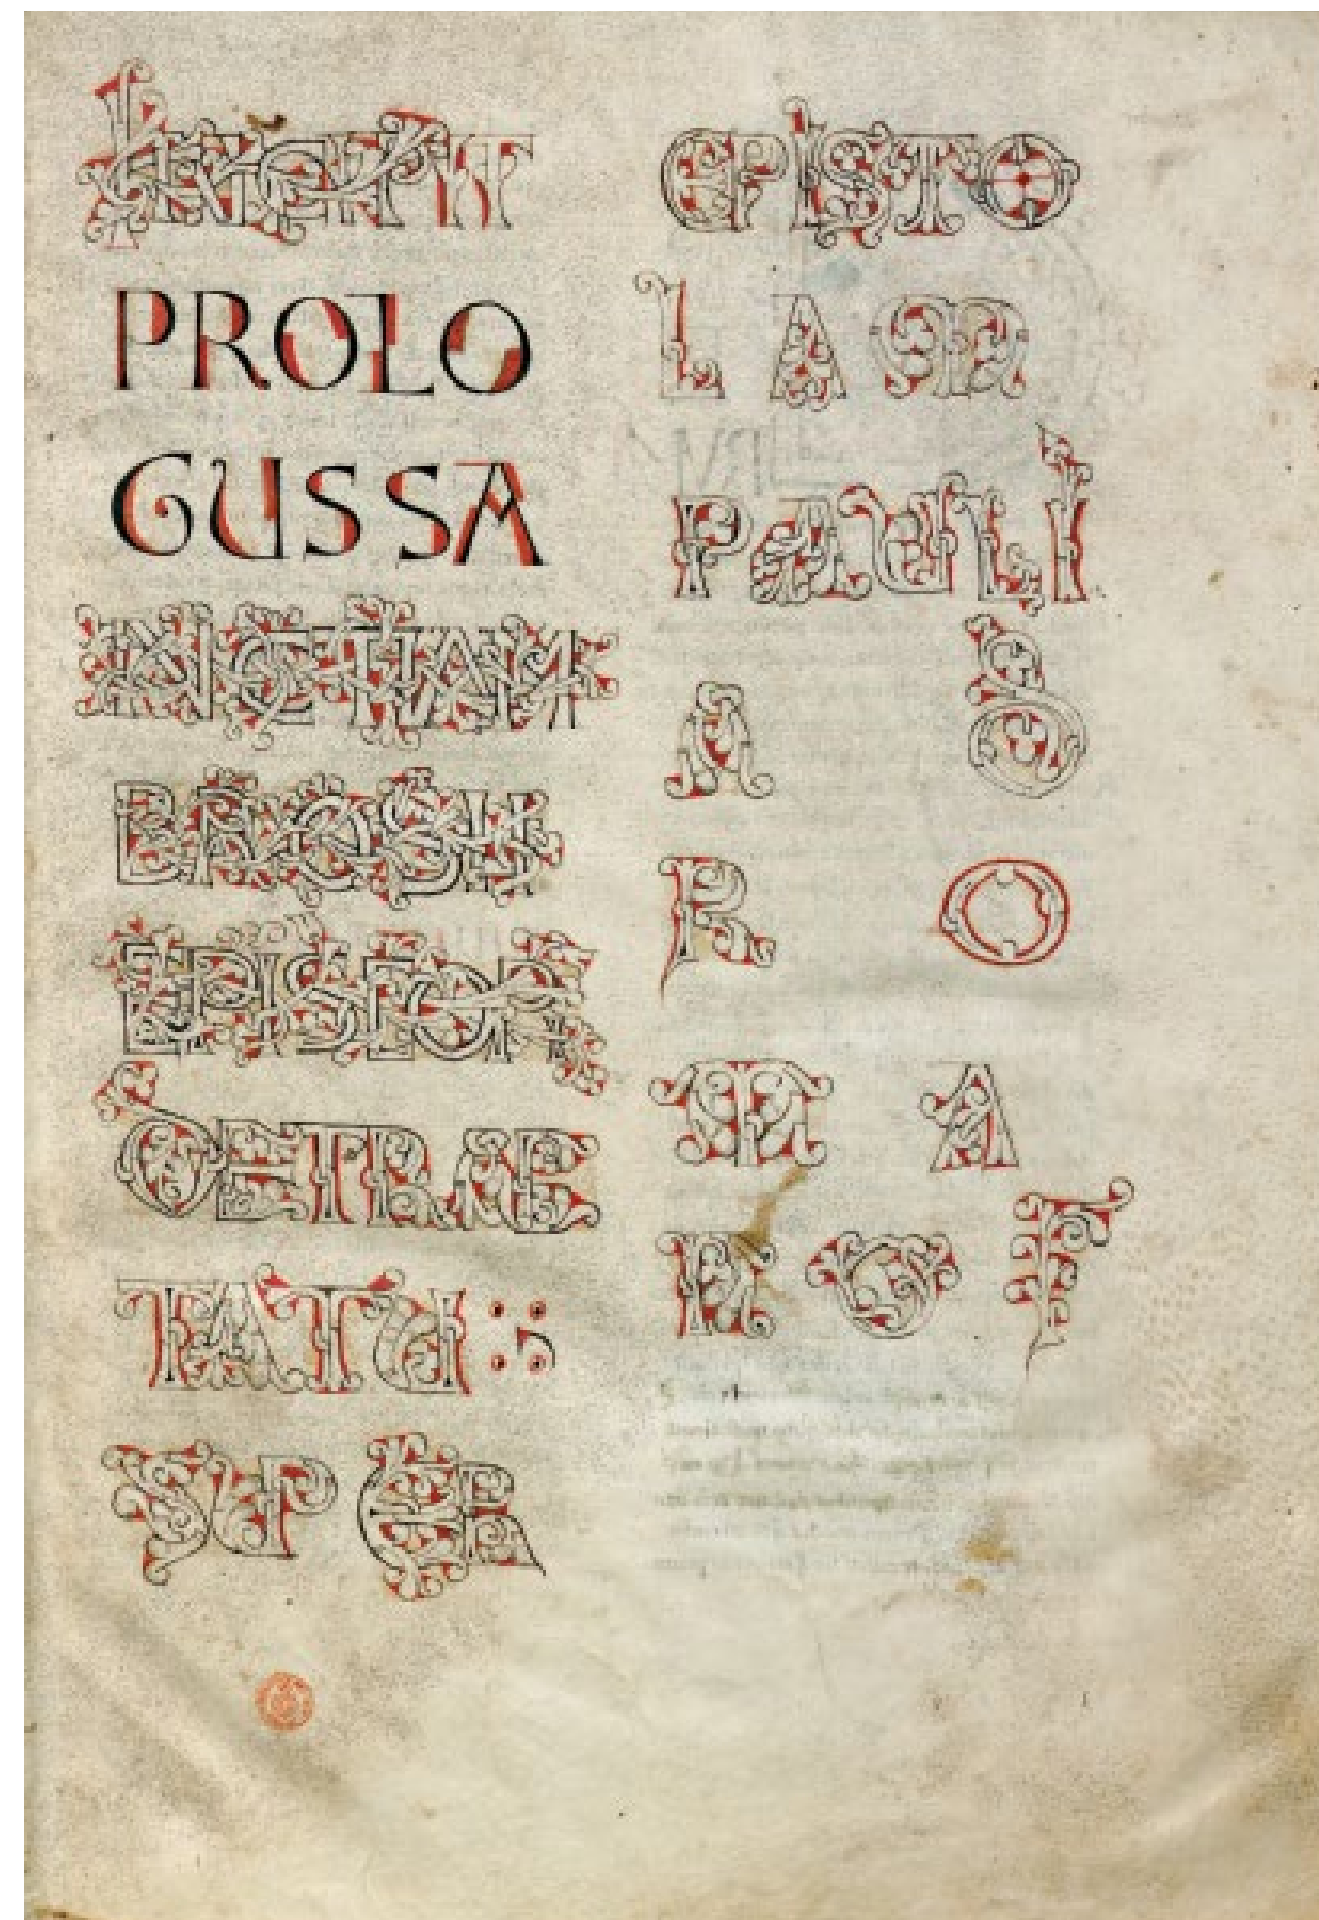 INCIPIT
PROLO
GUSSA
NCTIAM
BROSII
EPISCOPI
DETRAC
TATU
SUPER
EPISTO
LAM
PAULI
A D
R O
M A
N O S